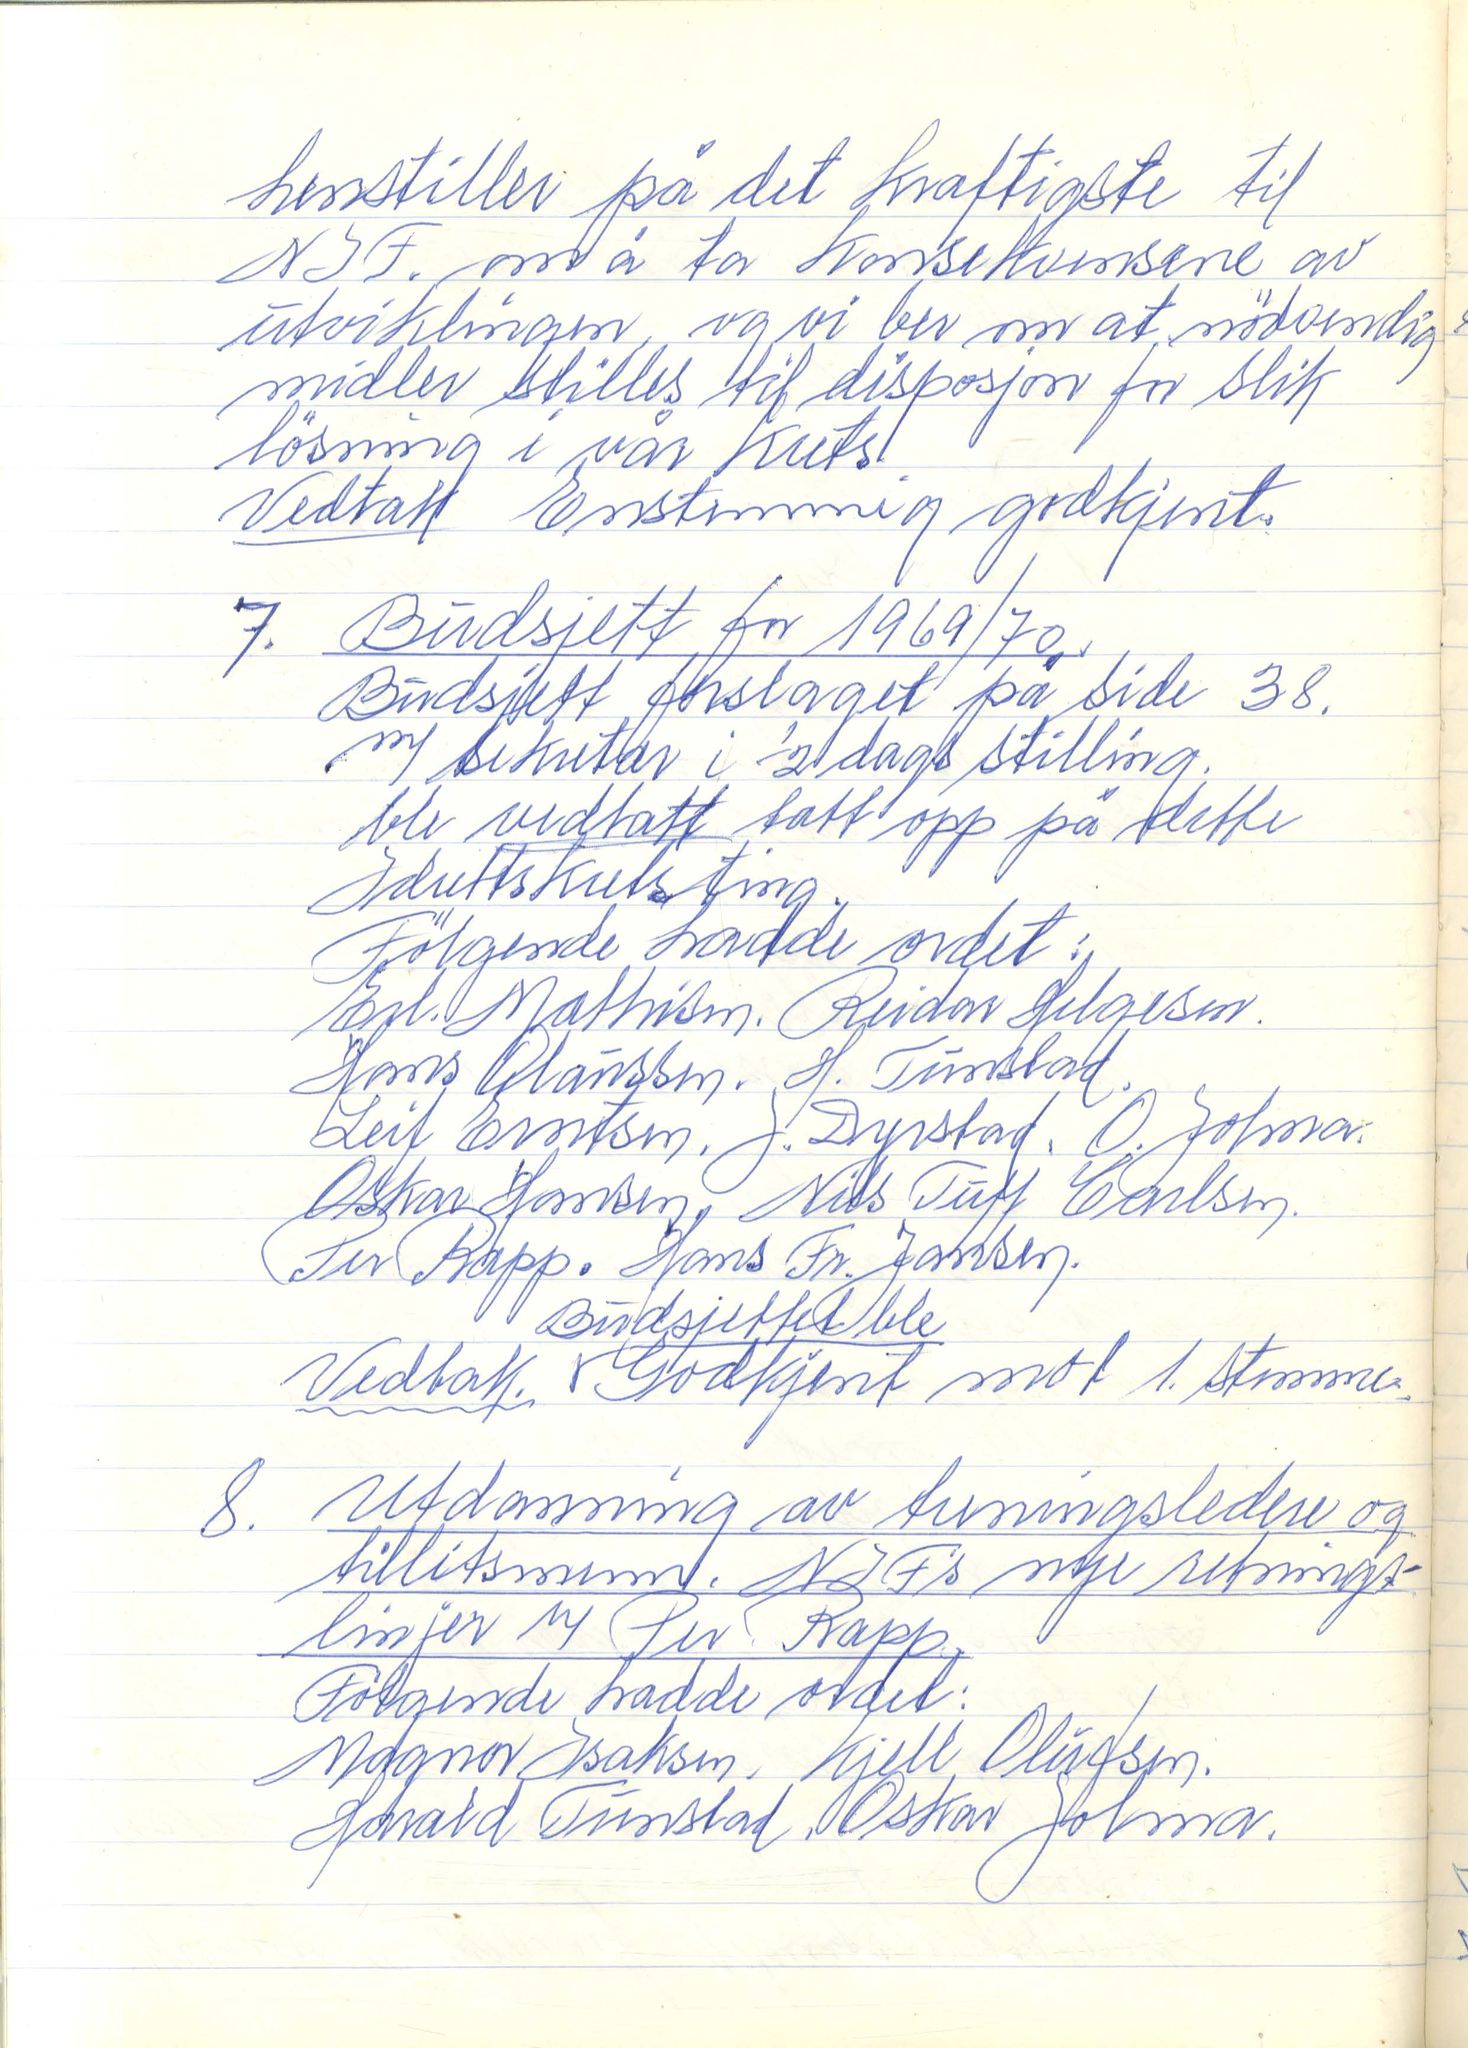 henstiller på det kraftigste til
NIF. om å ta konsekvensene av
utviklingen, og vi ber om at nödvendig
midler stilles til disposjon for slik
lösning i vår krets.
Vedtak Enstemmig godkjent.
7. Budsjett for 1969/70.
Budsjett forslaget på side 38.
m/ sekretær i 1/2 dags stilling.
ble vedtatt tatt opp på dette
Idrettskrets ting.
Fölgende hadde ordet:
Erl. Mathisen. Reidar Helgesen.
Hans Olaussen. H. Tunstad.
Leif Erntsen. J. Dyrstad. O. Johma.
Oskar Hansen. Nils Tuff Carlsen.
Per Rapp. Hans Fr. Jansen.
Budsjettet ble
Vedtak. Godkjent mot 1. stemme.
8. Utdanning av treningsledere og
tillitsmenn. NIF's nye retnings-
linjer v/ Per Rapp.
Fölgende hadde ordet:
Magnor Isaksen. Kjell Olufsen.
Harald Tunstad. Oskar Johma.